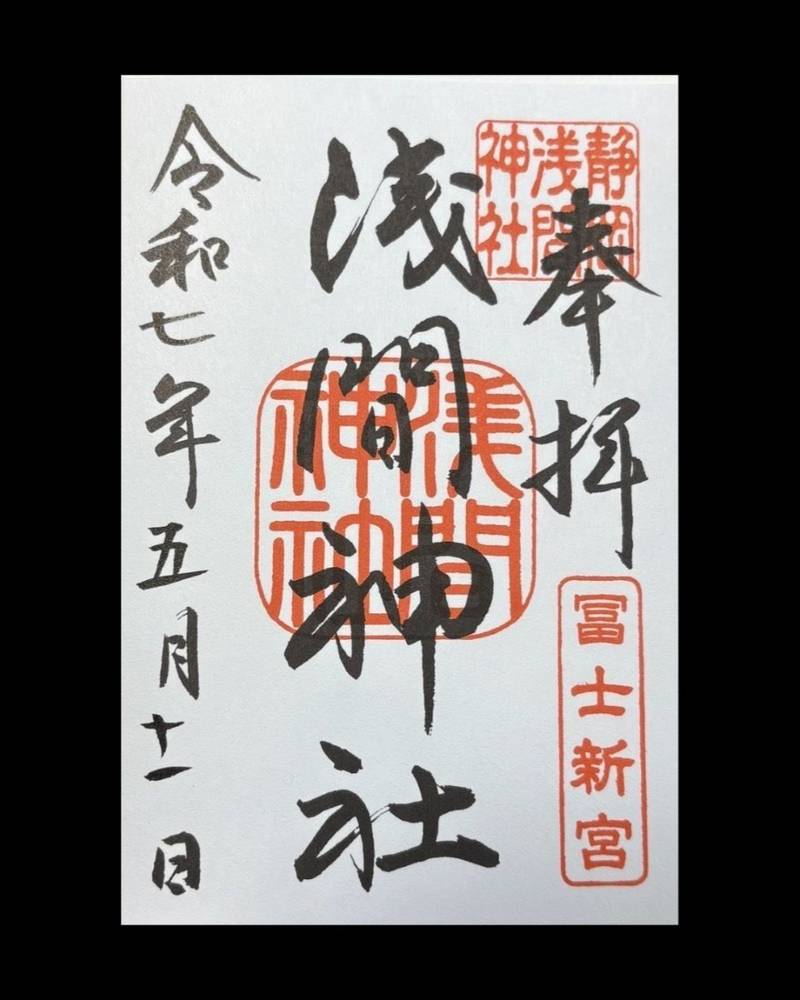 奉拝
静岡浅間神社
冨士新宮
浅間神社
浅間神社
令和七年五月十一日